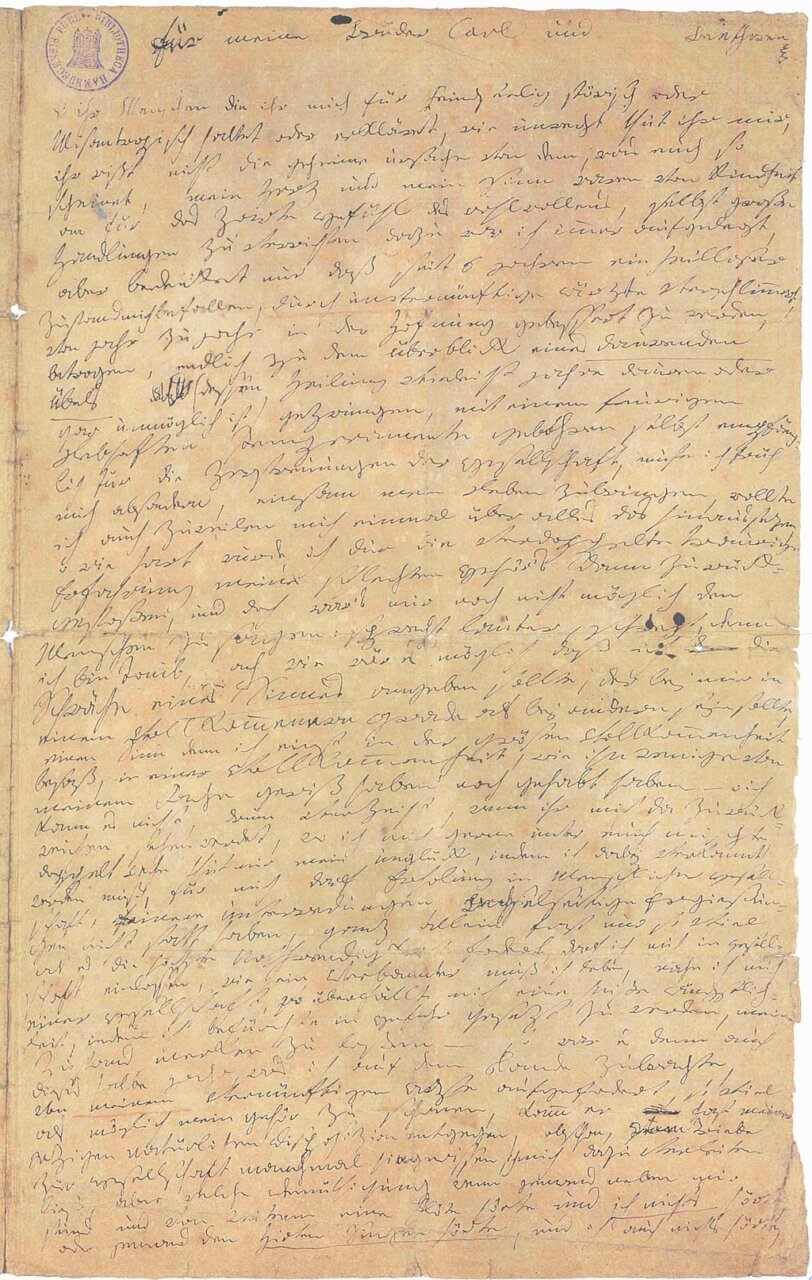 BIBLIOTHECA HAMBURGENSIS PUBL.
für meine brüder Carl und Beethoven
o ihr Menschen die ihr mich für Feindseelig störisch oder
Misantropisch haltet oder erkläret, wie unrecht thut ihr mir,
ihr wißt nicht die geheime ursache von dem, was euch so
scheinet, mein Herz und mein Sinn waren von Kindheit
an für das Zarte gefühl des wohlwollens, selbst große
Handlungen zu verrichten dazu war ich immer aufgelegt,
aber bedenket nur daß seit 6 jahren ein heilloser
Zustand mich befallen, durch unvernünftige ärzte verschlimmert,
von jahr zu jahr in der Hofnung gebessert zu werden,
betrogen, endlich zu dem überblick eines daurenden
Übels (dessen Heilung vieleicht jahre dauren oder
gar unmöglich ist) gezwungen, mit einem feurigen
Lebhaften Temperamente gebohren selbst empfäng-
lich für die Zerstreuungen der gesellschaft, muste ich früh
mich absondern, einsam mein Leben zubringen, wollte
ich auch zuweilen mich einmal über alles das hinaussezen
o wie hart wurde ich dur die verdoppelte traurige
Erfahrung meines schlechten gehör's dann zurück-
gestoßen, und doch war's mir noch nicht möglich den
Menschen zu sagen: sprecht lauter, schreyt, denn
ich bin Taub, ach wie wär es möglich daß ich die
Schwäche eines Sinnes angeben sollte, der bej mir in
einem Vollkommenern grade als bej andern sejn sollte,
einen Sinn denn ich einst in der grösten Vollkommenheit
besaß, in einer Vollkommenheit, wie ihn wenige von
meinem Fache gewiß haben noch gehabt haben – o ich
kann es nicht, drum verzeiht, wenn ihr mich da zurück-
weichen sehen werdet, wo ich mich gerne unter euch mischte
doppelt wehe thut mir mein unglück, indem ich dabej verkannt
werden muß, für mich darf Erholung in Menschlicher gesell-
schaft, feinere unterredungen, wechselseitige Ergießun-
gen nicht statt haben, ganz allein fast nur so viel
als es die höchste Nothwendigkeit fodert, darf ich mich in gesell-
schaft einlassen, wie ein Verbannter muß ich leben, nahe ich mich
einer gesellschaft, so überfällt mich eine heiße ängstlich-
keit, indem ich befürchte in gefahr gesezt zu werden, meinen
Zustand merken zu laßen – so war es denn auch
dieses halbe jahr, was ich auf dem Lande zubrachte,
von meinem vernünftigen arzte aufgefodert, so viel
als möglich mein gehör zu schonen, kamm er fast meiner
jezigen natürlichen disposizion entgegen, obschon, vom Triebe
zur gesellschaft manchmal hingerissen, ich mich dazu verleiten
ließ, aber welche demüthigung wenn jemand neben mir
stund und von weitem eine flöte hörte und ich nichts hörte
oder jemand den Hirten Singen hörte, und ich auch nichts hörte,